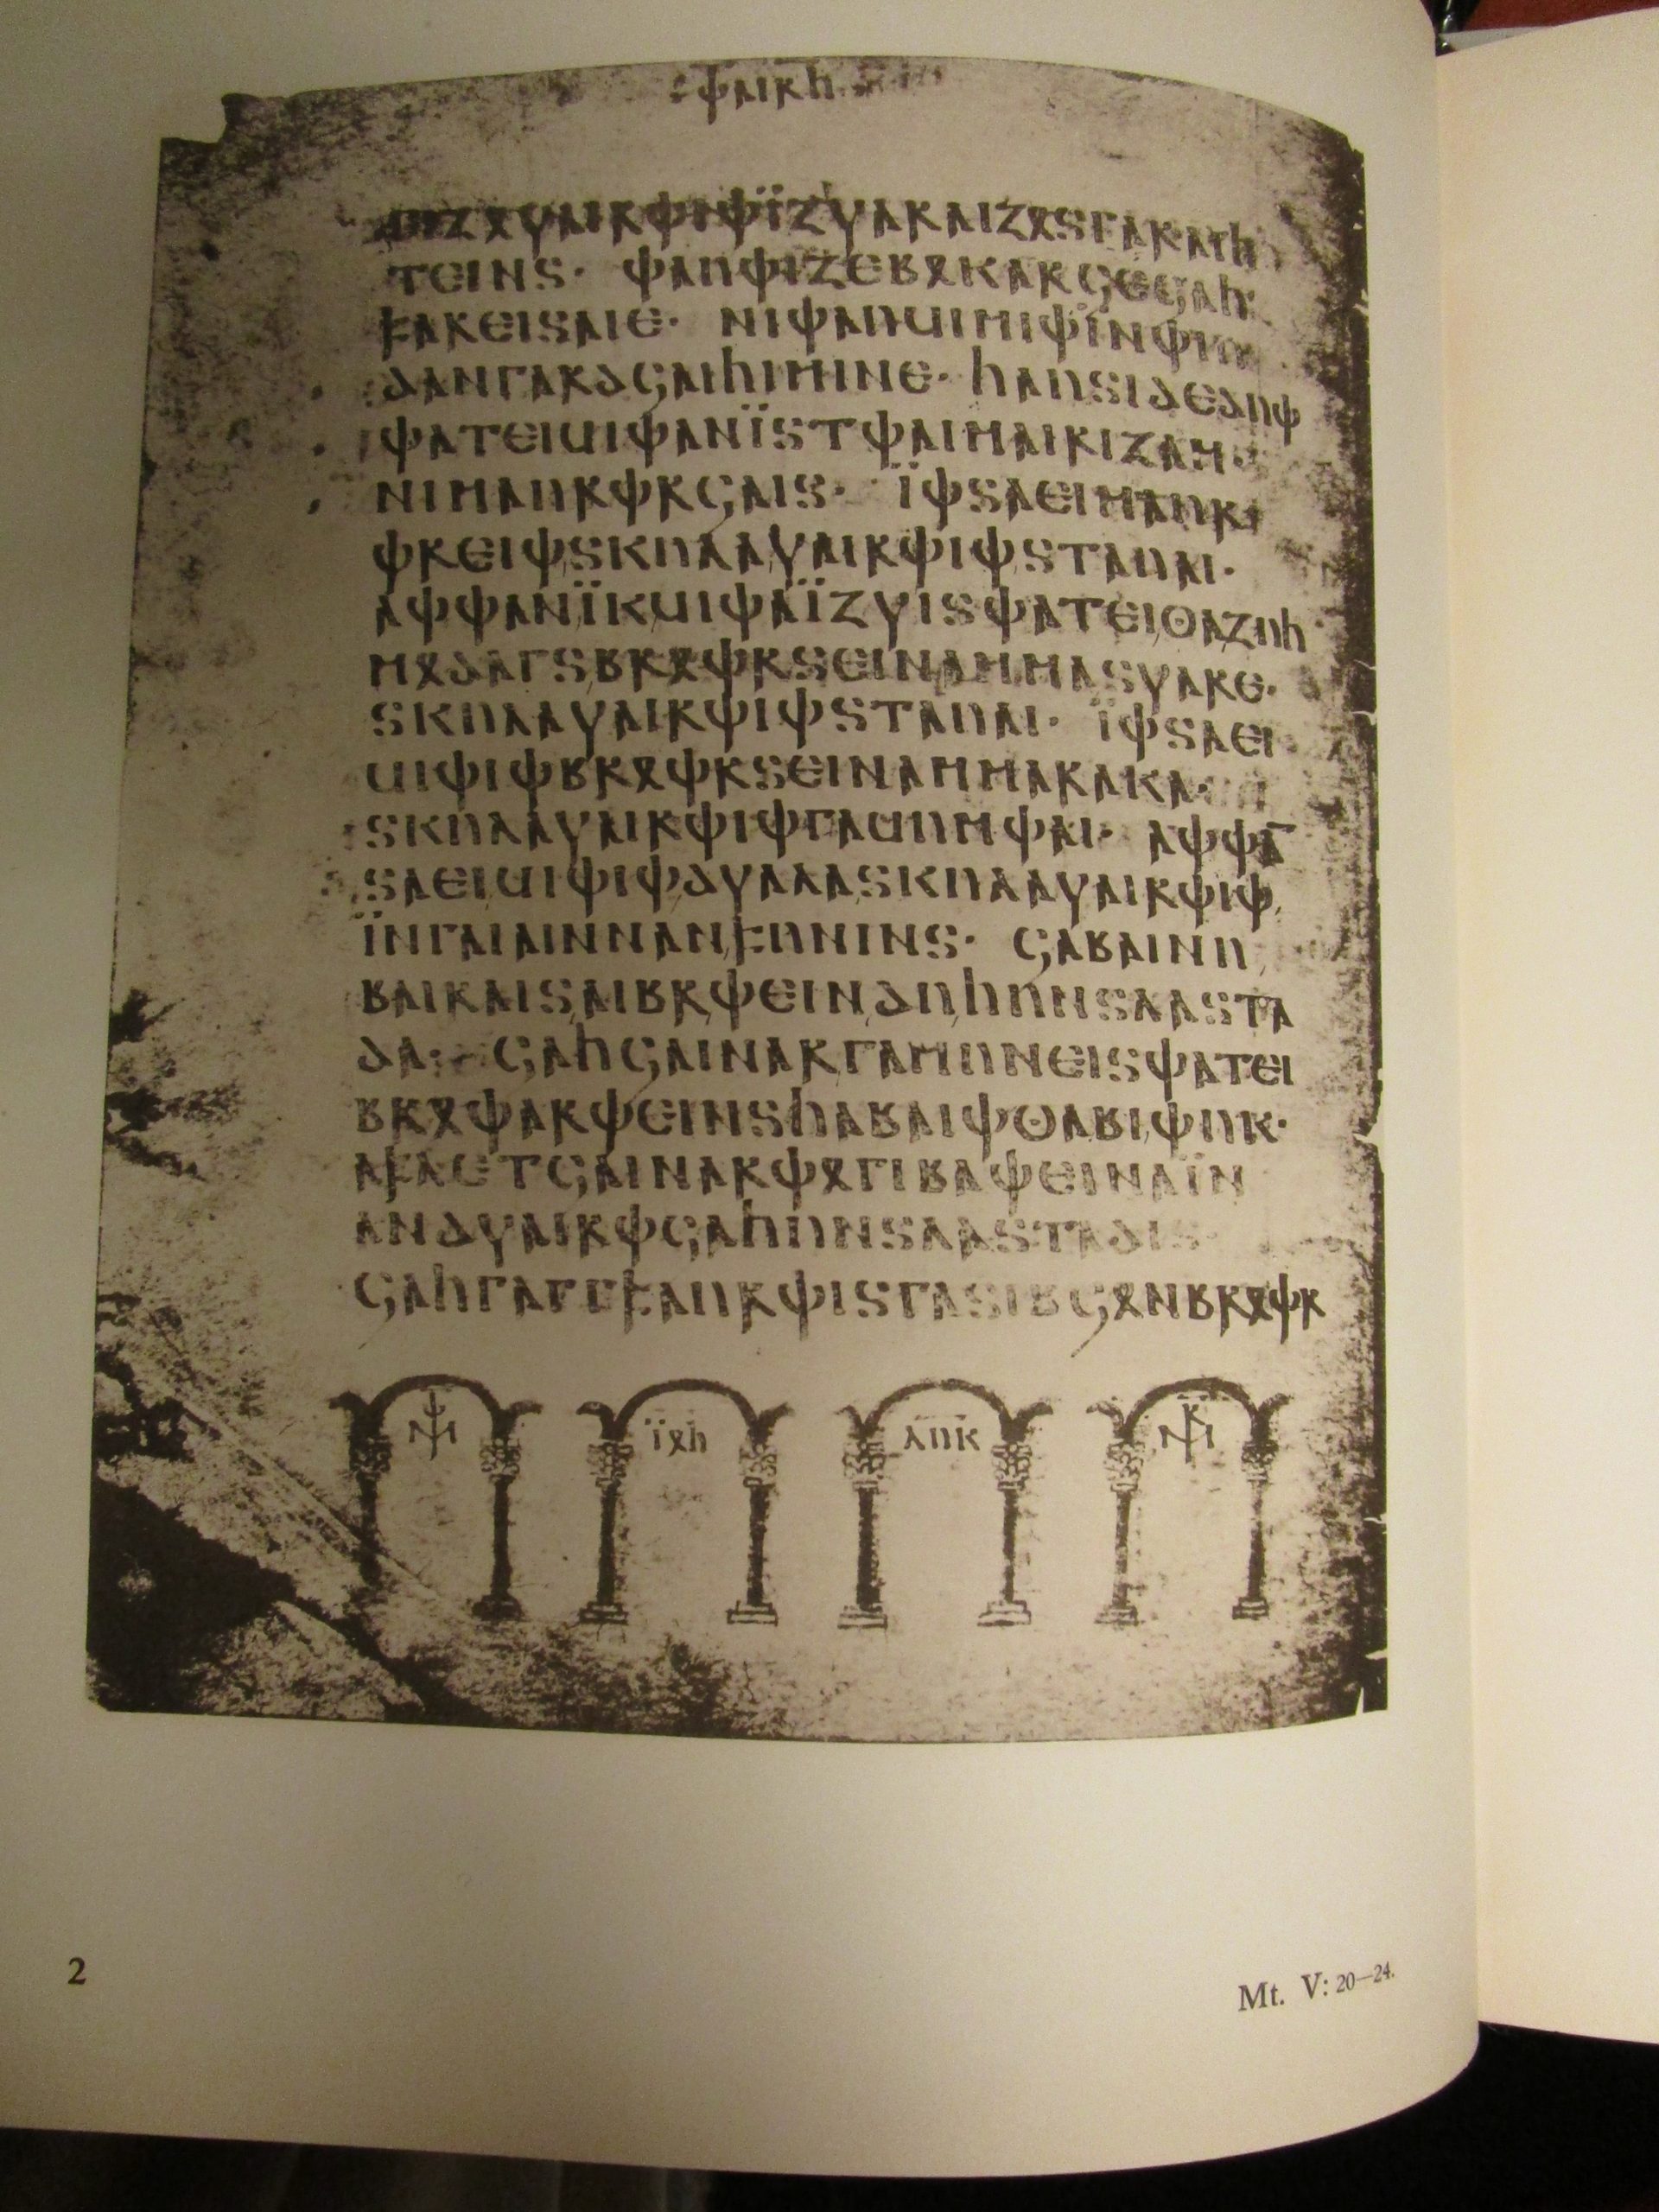 :𐌸𐌰𐌹𐍂𐌷:
𐌲𐌹𐌶𐍉𐍅𐌰𐌹𐍂𐌸𐌹𐌸𐌹̈𐌶𐍅𐌰𐍂𐌰𐌹𐌶𐍉𐍃𐌲𐌰𐍂𐌰𐌹𐌷
𐍄𐌴𐌹𐌽𐍃· 𐌸𐌰𐌿𐌸𐌹𐌶𐌴𐌱𐍉𐌺𐌰𐍂𐌾𐌴𐌾𐌰𐌷
𐍆𐌰𐍂𐌴𐌹𐍃𐌰𐌹𐌴· 𐌽𐌹𐌸𐌰𐌿𐌵𐌹𐌼𐌹𐌸𐌹̈𐌽𐌸𐌹𐌿
𐌳𐌰𐌽𐌲𐌰𐍂𐌳𐌾𐌰𐌹𐌷𐌹𐌼𐌹𐌽𐌴· 𐌷𐌰𐌿𐍃𐌹𐌳𐌴𐌳𐌿𐌸
𐌸𐌰𐍄𐌴𐌹𐌵𐌹𐌸𐌰𐌽𐌹̈𐍃𐍄𐌸𐌰𐌹𐌼𐌰𐌹𐍂𐌹𐌶𐌰𐌼·
𐌽𐌹𐌼𐌰𐌿𐍂𐌸𐍂𐌾𐌰𐌹𐍃· 𐌹̈𐌸𐍃𐌰𐌴𐌹𐌼𐌰𐌿𐍂
𐌸𐍂𐌴𐌹𐌸𐍃𐌺𐌿𐌻𐌰𐍅𐌰𐌹𐍂𐌸𐌹𐌸𐍃𐍄𐌰𐌿𐌰𐌹·
𐌰𐌸𐌸𐌰𐌽𐌹̈𐌺𐌵𐌹𐌸𐌰𐌹̈𐌶𐍅𐌹𐍃𐌸𐌰𐍄𐌴𐌹𐍈𐌰𐌶𐌿𐌷
𐌼𐍉𐌳𐌰𐌲𐍃𐌱𐍂𐍉𐌸𐍂𐍃𐌴𐌹𐌽𐌰𐌼𐌼𐌰𐍃𐍅𐌰𐍂𐌴·
𐍃𐌺𐌿𐌻𐌰𐍅𐌰𐌹𐍂𐌸𐌹𐌸𐍃𐍄𐌰𐌿𐌰𐌹· 𐌹̈𐌸𐍃𐌰𐌴𐌹
𐌵𐌹𐌸𐌹𐌸𐌱𐍂𐍉𐌸𐍂𐍃𐌴𐌹𐌽𐌰𐌼𐌼𐌰𐍂𐌰𐌺𐌰·
𐍃𐌺𐌿𐌻𐌰𐍅𐌰𐌹𐍂𐌸𐌹𐌸𐌲𐌰𐌵𐌿𐌼𐌸𐌰𐌹· 𐌰𐌸𐌸𐌰̄
𐍃𐌰𐌴𐌹𐌵𐌹𐌸𐌹𐌸𐌳𐍅𐌰𐌻𐌰𐍃𐌺𐌿𐌻𐌰𐍅𐌰𐌹𐍂𐌸𐌹𐌸
𐌹̈𐌽𐌲𐌰𐌹𐌰𐌹𐌽𐌽𐌰𐌽𐍆𐌿𐌽𐌹𐌽𐍃· 𐌾𐌰𐌱𐌰𐌹𐌽𐌿
𐌱𐌰𐌹𐍂𐌰𐌹𐍃𐌰𐌹𐌱𐍂𐌸𐌴𐌹𐌽𐌳𐌿𐌷𐌿𐌽𐍃𐌻𐌰𐍃𐍄𐌰
𐌳𐌰· 𐌾𐌰𐌷𐌾𐌰𐌹𐌽𐌰𐍂𐌲𐌰𐌼𐌿𐌽𐌴𐌹𐍃𐌸𐌰𐍄𐌴𐌹
𐌱𐍂𐍉𐌸𐌰𐍂𐌸𐌴𐌹𐌽𐍃𐌷𐌰𐌱𐌰𐌹𐌸𐍈𐌰𐌱𐌹𐌸𐌿𐌺·
𐌰𐍆𐌻𐌴𐍄𐌾𐌰𐌹𐌽𐌰𐍂𐌸𐍉𐌲𐌹𐌱𐌰𐌸𐌴𐌹𐌽𐌰𐌹̈𐌽
𐌰𐌽𐌳𐍅𐌰𐌹𐍂𐌸𐌾𐌰𐌷𐌿𐌽𐍃𐌻𐌰𐍃𐍄𐌰𐌳𐌹𐍃
𐌾𐌰𐌷𐌲𐌰𐌲𐌲𐍆𐌰𐌿𐍂𐌸𐌹𐍃𐌲𐌰𐍃𐌹𐌱𐌾𐍉𐌽𐌱𐍂𐍉𐌸𐍂
𐌹̈𐍉𐌷 𐌻𐌿𐌺
2 Mt. V: 20—24.